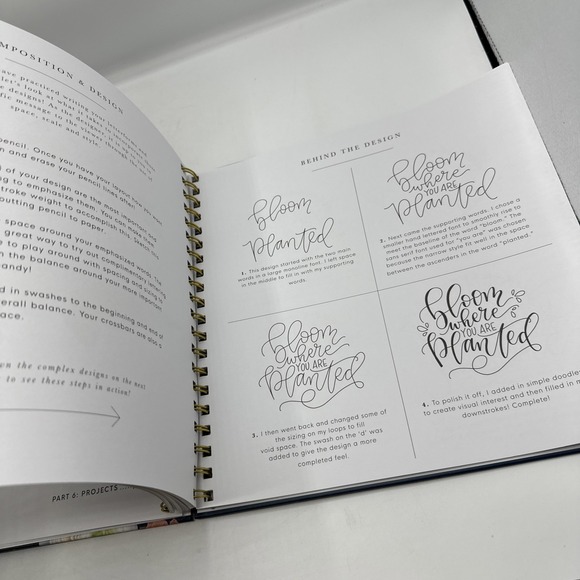 MPOSITION & DESIGN
ave practiced writing your letters and
let's look at what it
e designs! As the designer,
fic message to the
space, scale and style,
pencil. Once you have your layout
n and erase your pencil lines
) of your design are the most important
ng to emphasize them. You can
stroke weight to accomplish this. Sketch
putting pencil to paper.
space around your emphasized words. The
great way to try out complimentary lettering
e to play around with spacing and sizing
n the balance around your more important
andy!
d in swashes to the beginning and end of
erall balance. Your crossbars are also a
ace.
on the complex designs on the next
to see these steps in action!
PART 6: PROJECTS
BEHIND THE DESIGN
bloom
planted
1. This design started with the two main
words in a large monoline font. I left space
in the middle to fill in with my supporting
words.
bloom
where
YOU ARE
planted
2. Next came the supporting words. I chose a
smaller hand lettered font to smoothly rise to
meet the baseline of the word "bloom." The
sans serif font used for "you are" was chosen
because the narrow style fit well in the space
between the ascenders in the word "planted."
bloom
where
YOU ARE
planted
3. I then went back and changed some of
the sizing on my loops to fill
void space. The swash on the 'd' was
added to give the design a more
completed feel.
bloom
where
YOU ARE
planted
4. To polish it off, I added in simple doodles
to create visual interest and then filled in m
downstrokes! Complete!